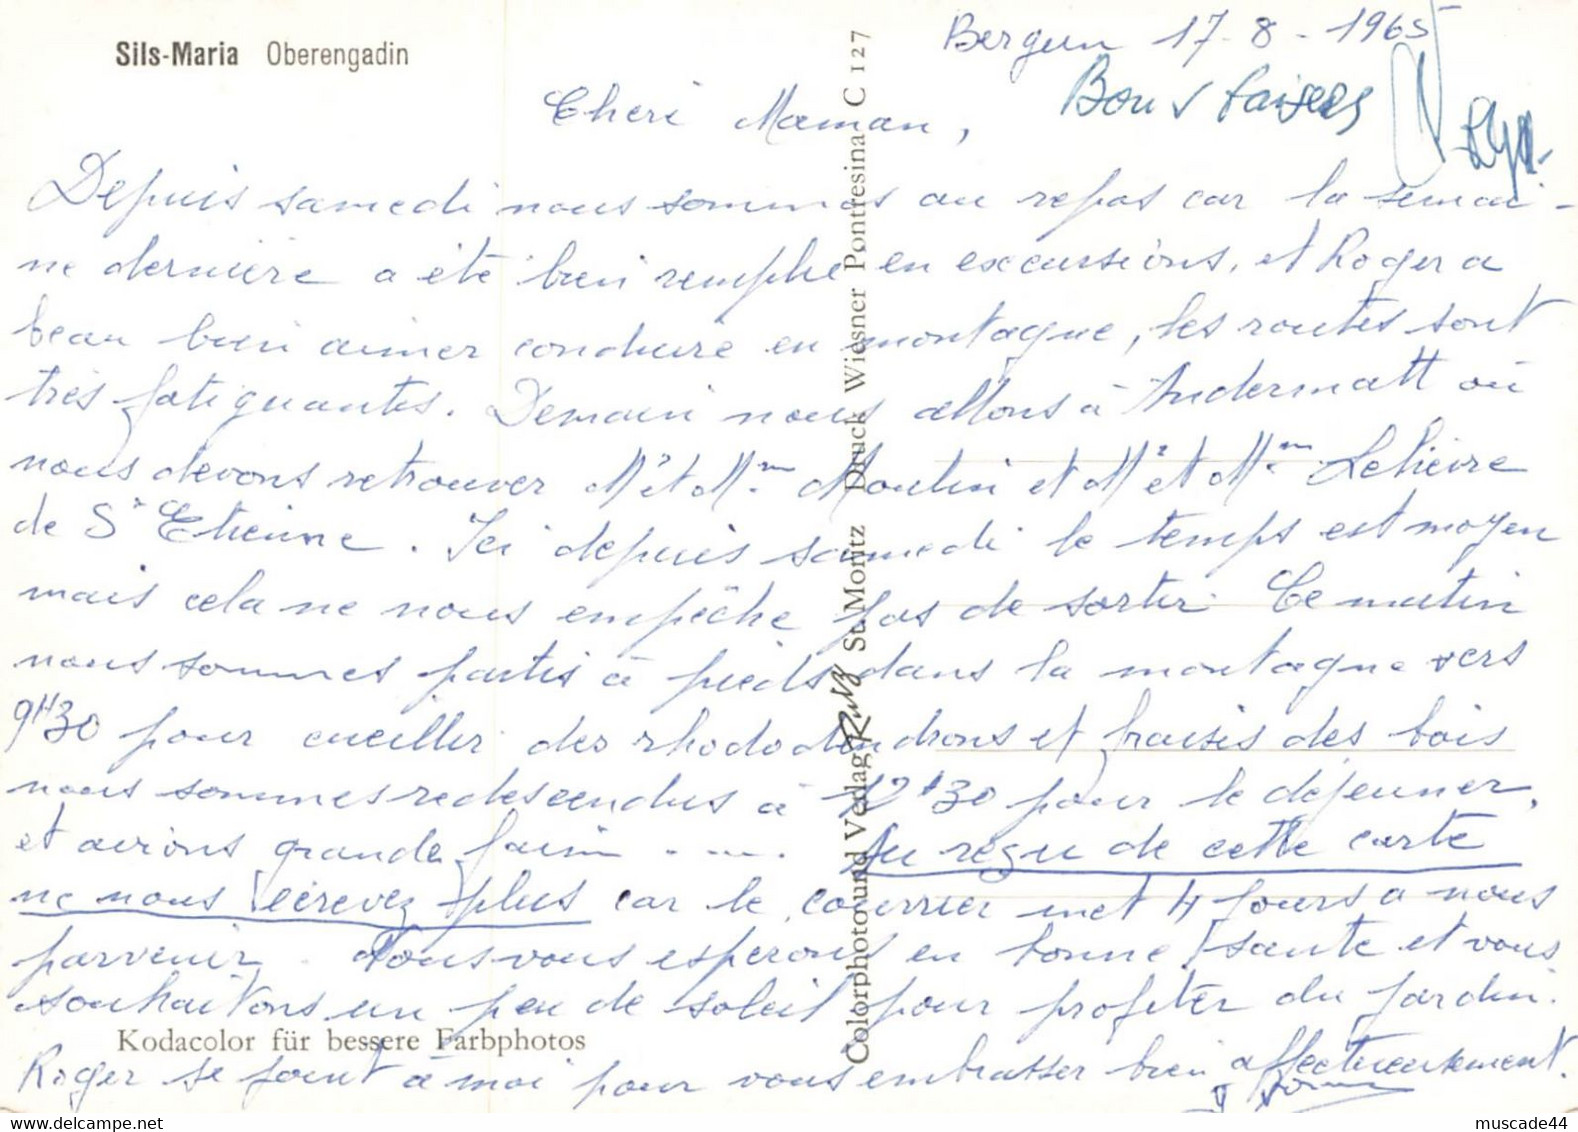 Sils-Maria Oberengadin
Bergun 17-8-1965
Bons baisers
Cheri Maman,
Depuis samedi nous sommes au repos car la semai-
ne dernière a été bien remplie en excursions, et Roger a
beau bien aimer conduire en montagne, les routes sont
très fatiguantes. Demain nous allons à Andermatt où
nous devons retrouver Mr et Mme Moulin et Mr et Mme Lelièvre
de St Etienne. Ici depuis samedi le temps est moyen
mais cela ne nous empêche pas de sortir. Ce matin
nous sommes partis à pieds dans la montagne vers
9H30 pour cueillir des rhododendrons et fraises des bois
nous sommes redescendus à 12H30 pour le déjeuner,
et avions grande faim . -- . Au reçu de cette carte
ne nous écrivez plus car le courrier met 4 jours a nous
parvenir. Nous vous esperons en bonne santé et vous
souhaitons un peu de soleil pour profiter du jardin.
Roger se joint à moi pour vous embrasser bien affectueusement.
Kodacolor für bessere Farbphotos
Colorphoto und Verlag Rutz St. Moritz Druck Wiesner Pontresina C 127
muscade44